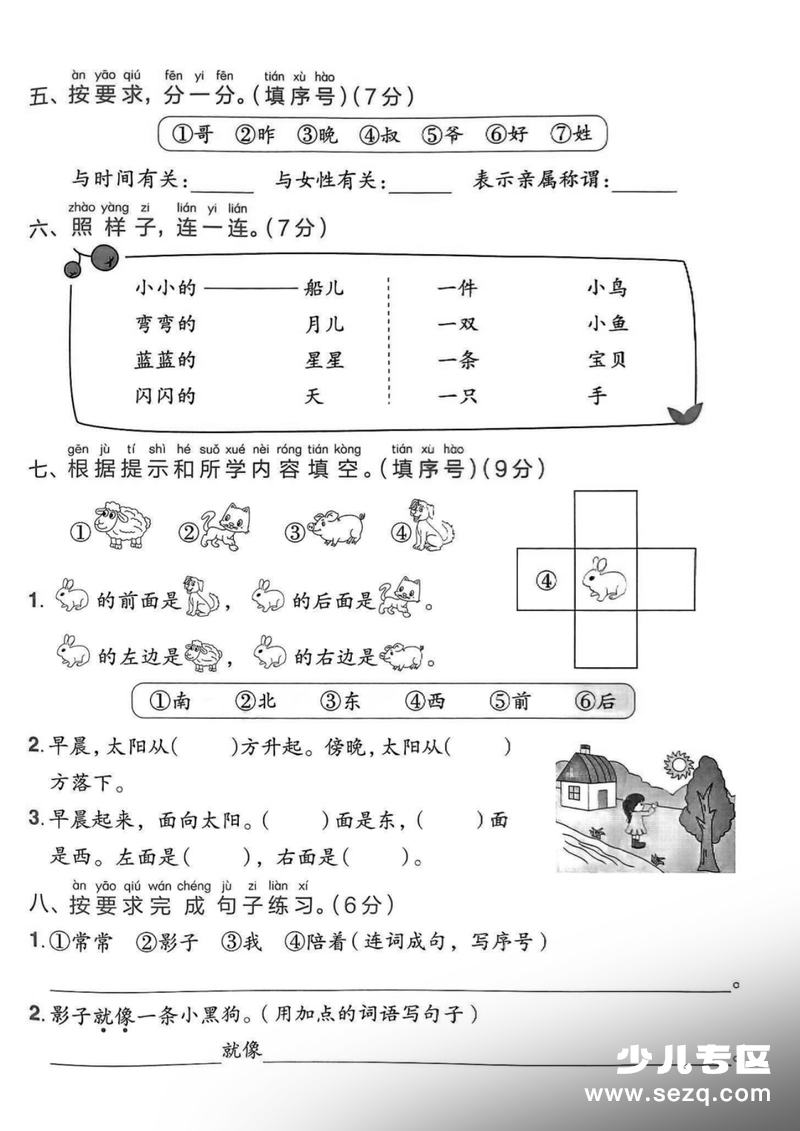 àn yāo qiú fēn yi fēn tián xù hào
五、按要求，分一分。（填序号）（7分）
①哥 ②昨 ③晚 ④叔 ⑤爷 ⑥好 ⑦姓
与时间有关：______ 与女性有关：______ 表示亲属称谓：______
zhào yàng zi lián yi lián
六、照样子，连一连。（7分）
小小的 船儿 一件 小鸟
弯弯的 月儿 一双 小鱼
蓝蓝的 星星 一条 宝贝
闪闪的 天 一只 手
gēn jù tí shì hé suǒ xué nèi róng tián kòng tián xù hào
七、根据提示和所学内容填空。（填序号）（9分）
① ② ③ ④
④
1. 的前面是 ， 的后面是 。
的左边是 ， 的右边是 。
①南 ②北 ③东 ④西 ⑤前 ⑥后
2.早晨，太阳从（ ）方升起。傍晚，太阳从（ ）
方落下。
3.早晨起来，面向太阳。（ ）面是东，（ ）面
是西。左面是（ ），右面是（ ）。
àn yāo qiú wán chéng jù zi liàn xí
八、按要求完成句子练习。（6分）
1.①常常 ②影子 ③我 ④陪着（连词成句，写序号）
______。
2.影子就像一条小黑狗。（用加点的词语写句子）
______就像______。
少儿专区
www.sezq.com